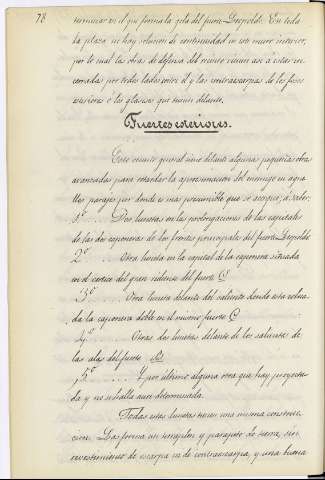 78
terminar es el que forma la gola del fuerte Leopoldo. En toda
la plaza no hay solucion de continuidad en este muro interior,
por lo cual las obras de defensa del recinto vienen asi á estar en-
cerradas por todos lados entre él y las contraescarpas de los fosos
exteriores ó los glasis que tienen delante.
Fuertes esteriores.
Este recinto general tiene delante algunas pequeñas obras
avanzadas para retardar la aproximacion del enemigo en aque-
llos parajes por donde es mas presumible que se acerque, á saber:
1º Dos lunetas en las prolongaciones de las capitales
de las dos caponeras de los frentes principales del fuerte Leopoldo
2º .... Otra luneta en la capital de la caponera situada
en el centro del gran rediente del fuerte C
3º .... Otra luneta delante del saliente donde esta coloca-
da la caponera doble en el mismo fuerte C
4º .... Otras dos lunetas delante de los salientes de
las alas del fuerte
5º .... Y por ultimo alguna otra que hay proyecta-
da y no se halla aun determinada.
Todas estas lunetas tienen una misma construc-
cion. Las forma un terraplen y parapeto de tierra, sin
revestimiento de escarpa ni de contraescarpa, y una buena